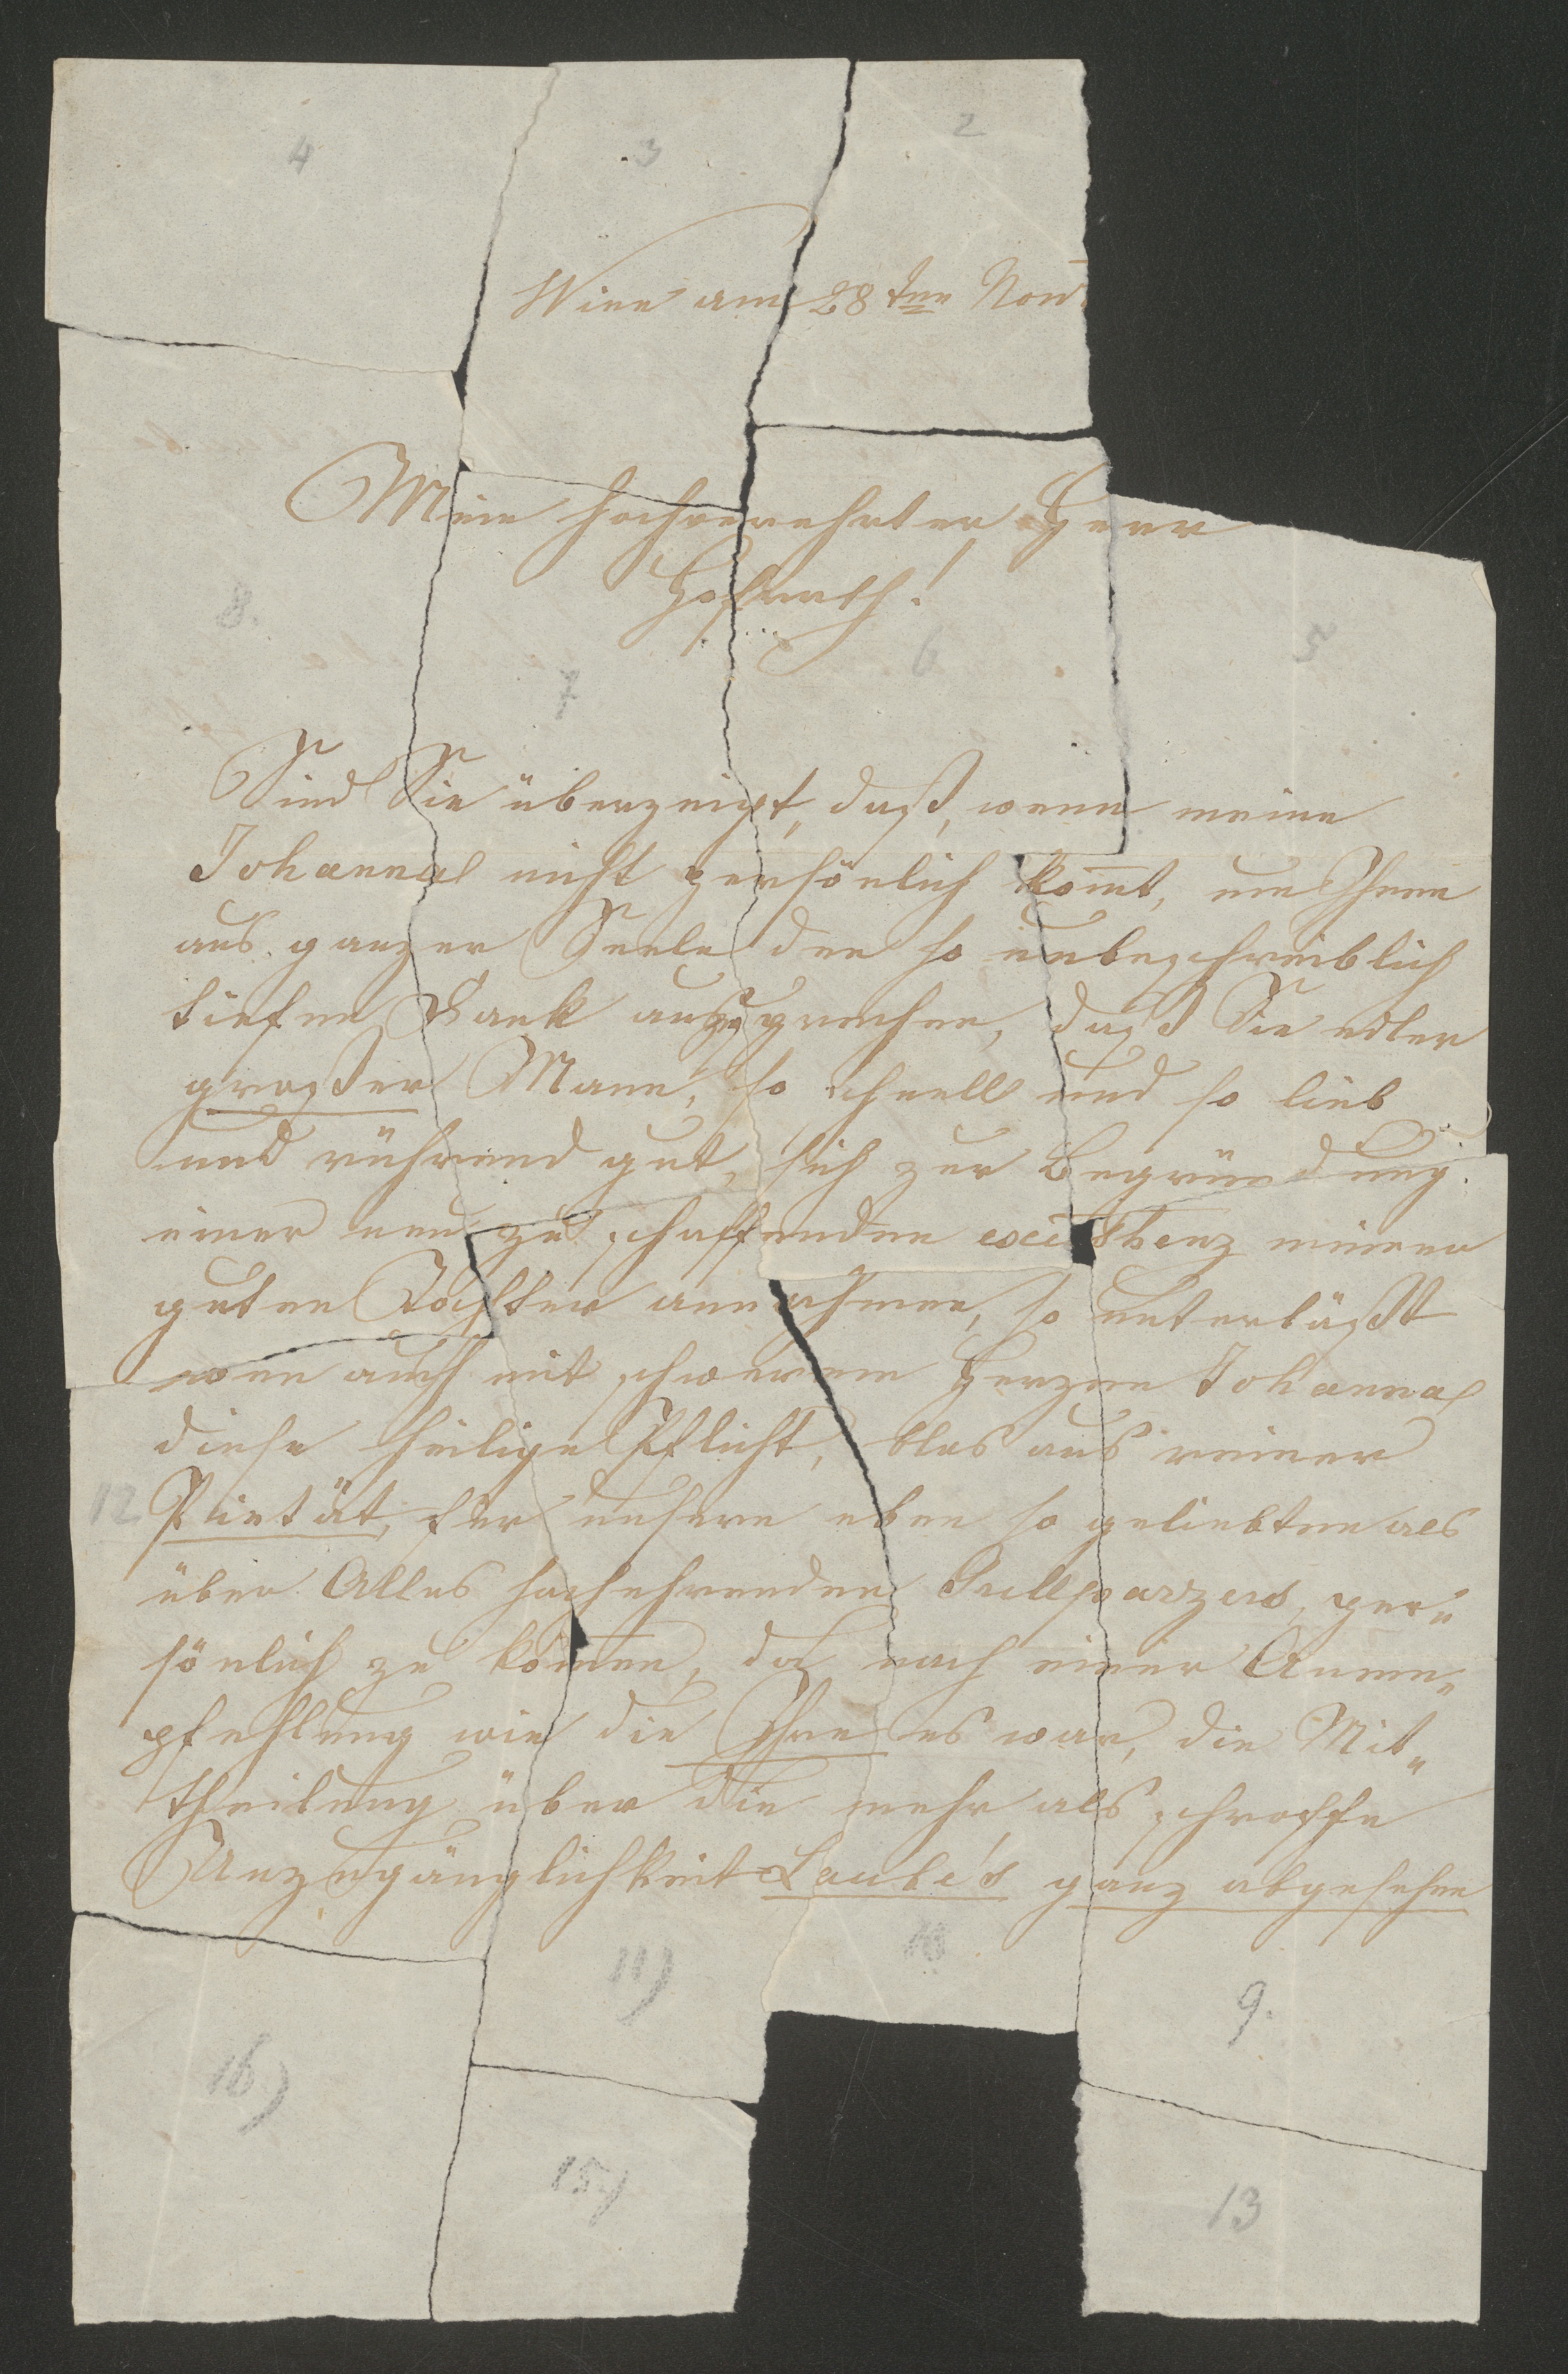 4
3
2
Wien am 28ten Nov
Mein hochverehrter Herr
Hofrath!
8.
7
6
5
Sind Sie überzeigt, daß, wenn meine
Johanna nicht persönlich kom̅t, um Ihnen
aus ganzer Seele den so unbeschreiblich
tiefen Dank auszusprechen, daß Sie edler
großer Mann, so schnell und so lieb
und rührend gut, sich zur Begründung
einer neu zu schaffenden existhenz meiner
guten Tochter annahmen, so unterläßt
wen auch mit schwerem Herzen Johanna
diese heilige Pflicht, blos aus reiner
12 Pietät, für unsern eben so geliebten als
über Alles hochehrenden Grillparzers, per„
sönlich zu kom̅en, da nach einer Anem„
pfehlung wie die Ihre es war, die Mit„
theilung über die mehr als schroffe
Unzugänglichkeit Laube's ganz abgesehen
11)
10
9.
16)
15)
13